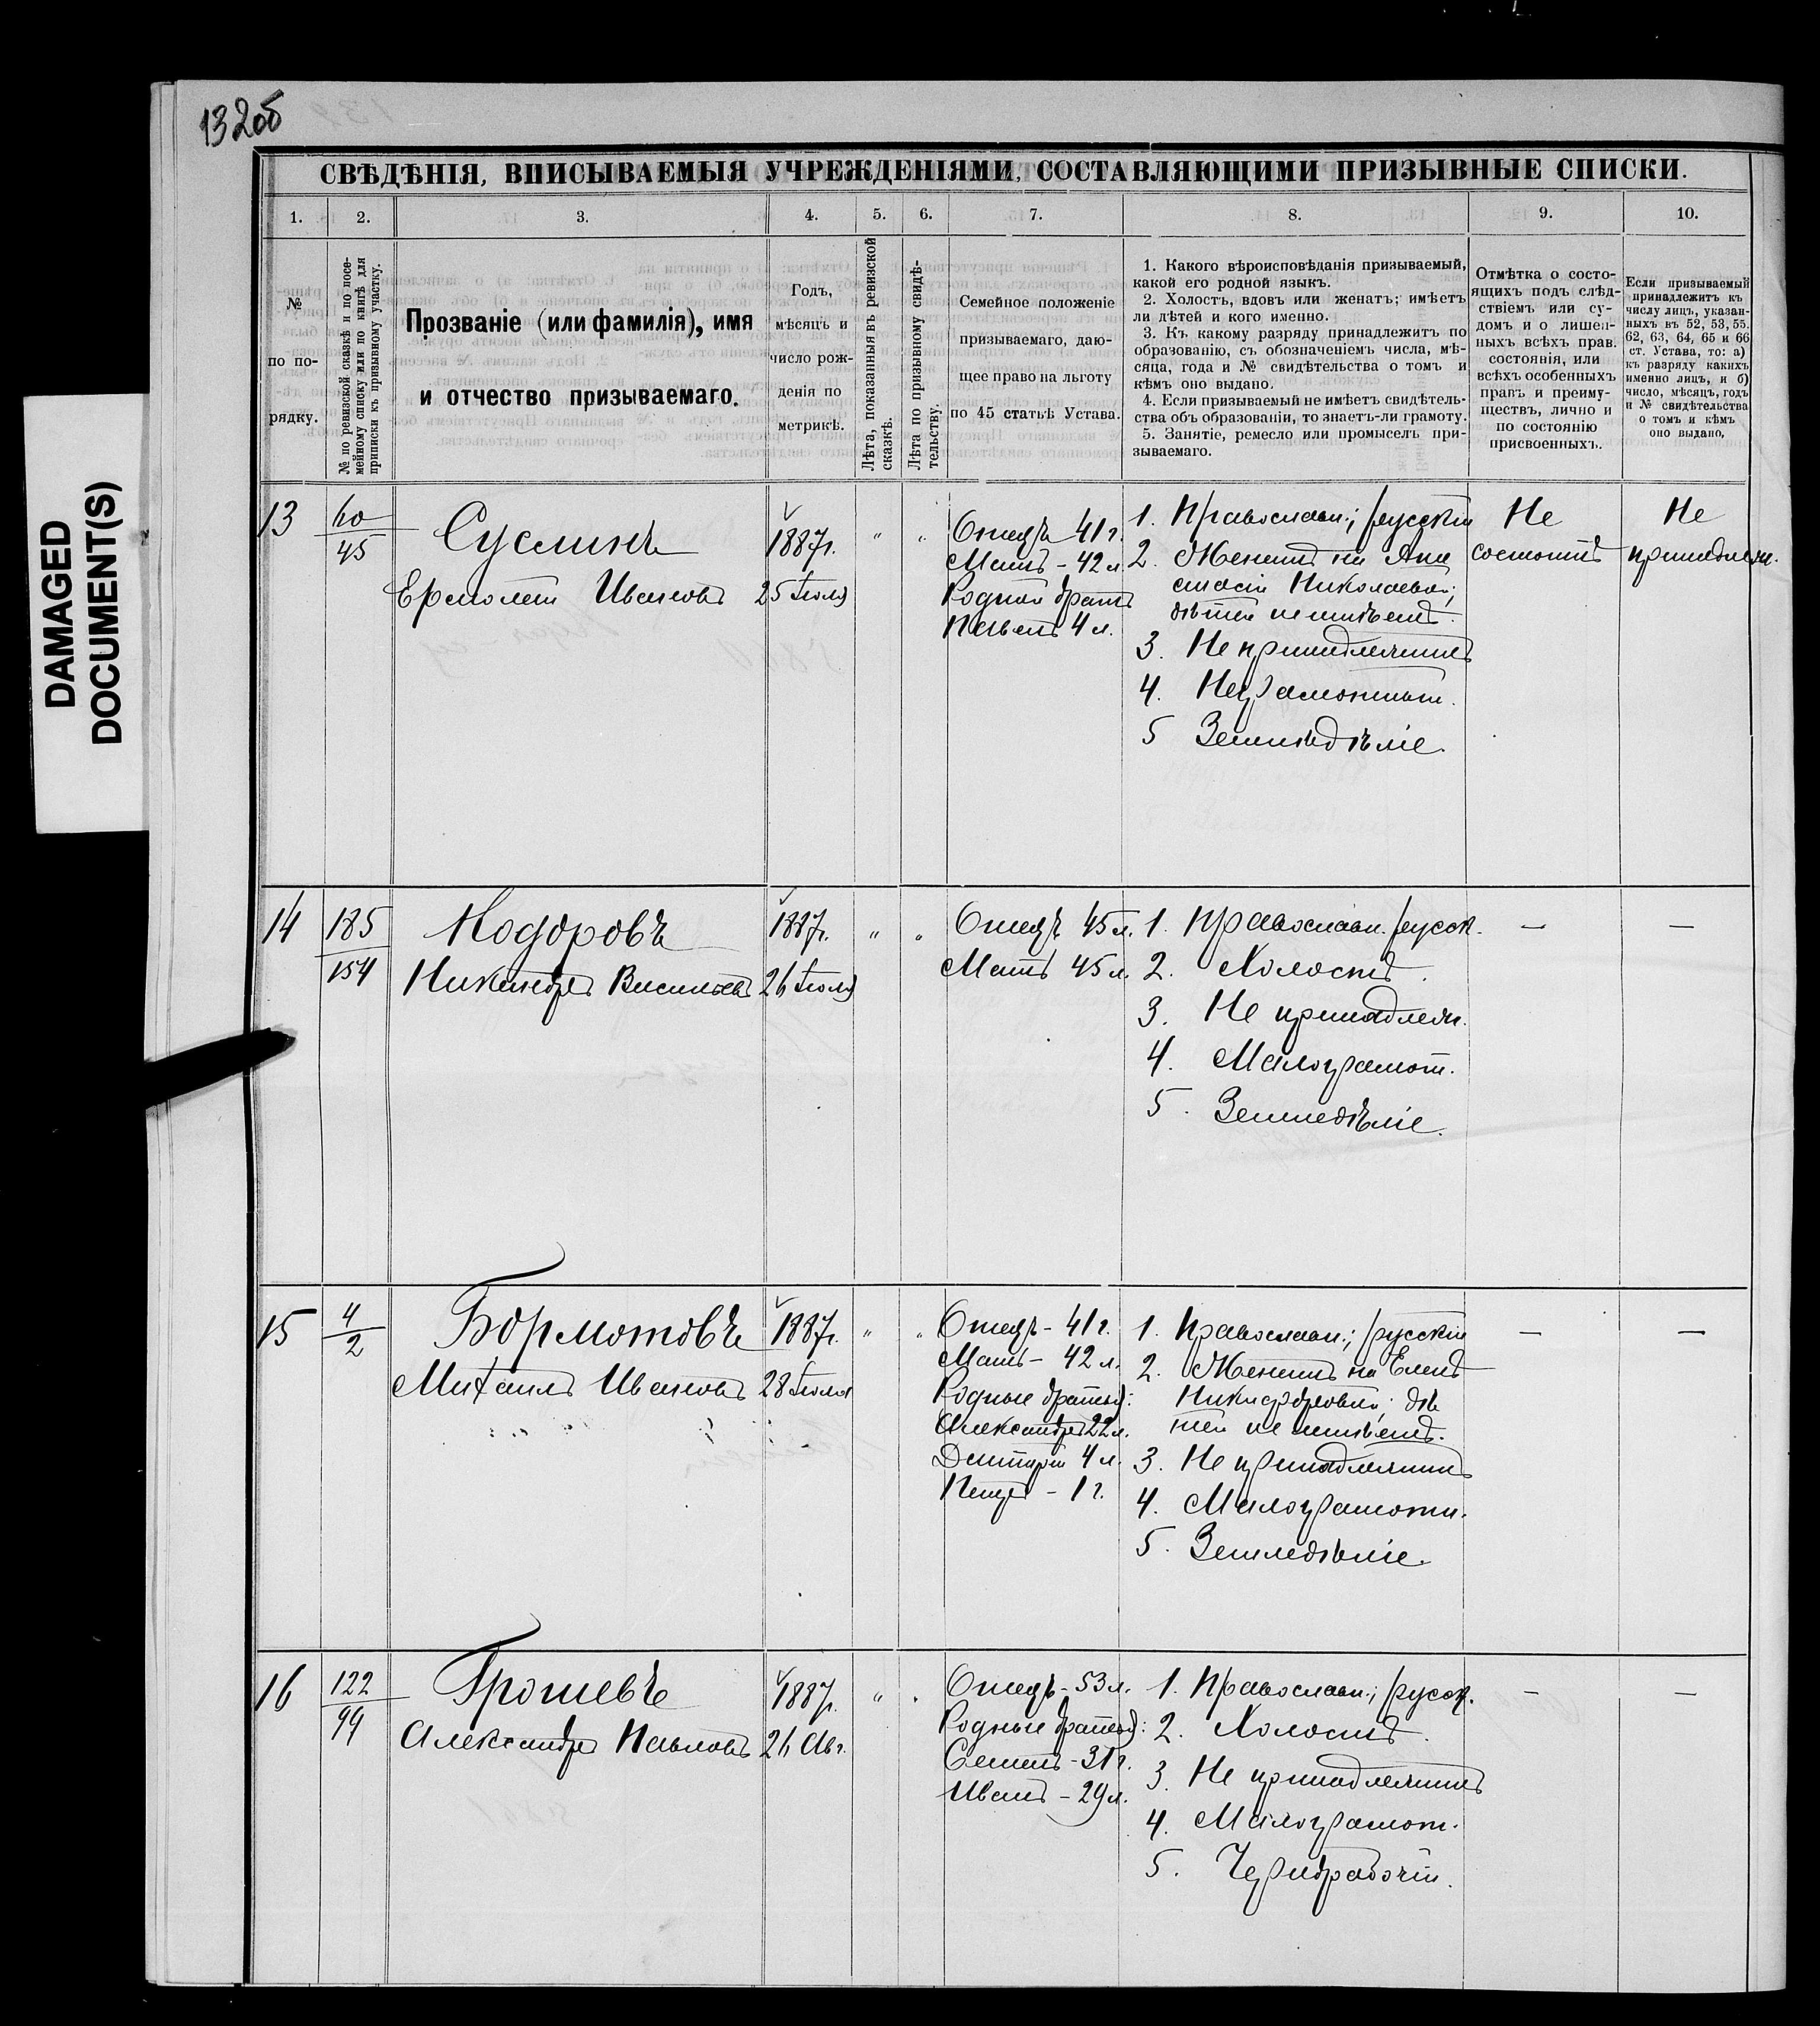 132об
DAMAGED
DOCUMENT(S)
СВѢДѢНІЯ, ВПИСЫВАЕМЫЯ УЧРЕЖДЕНІЯМИ, СОСТАВЛЯЮЩИМИ ПРИЗЫВНЫЕ СПИСКИ.
1. 2. 3. 4. 5. 6. 7. 8. 9. 10.
№
по по-
рядку.
№ по ревизской сказкѣ и по посе-
мейному списку или по книгѣ для
приписки къ призывному участку.
Прозваніе (или фамилія), имя
и отчество призываемаго.
Годъ,
мѣсяцъ и
число рож-
денія по
метрикѣ.
Лѣта, показанныя въ ревизской
сказкѣ.
Лѣта по призывному свидѣ-
тельству.
Семейное положеніе
призываемаго, даю-
щее право на льготу
по 45 статьѣ Устава.
1. Какого вѣроисповѣданія призываемый,
какой его родной языкъ.
2. Холостъ, вдовъ или женатъ; имѣетъ
ли дѣтей и кого именно.
3. Къ какому разряду принадлежитъ по
образованію, съ обозначеніемъ числа, мѣ-
сяца, года и № свидѣтельства о томъ и
кѣмъ оно выдано.
4. Если призываемый не имѣетъ свидѣтель-
ства объ образованіи, то знаетъ-ли грамоту.
5. Занятіе, ремесло или промыселъ при-
зываемаго.
Отмѣтка о состо-
ящихъ подъ слѣд-
ствіемъ или су-
домъ и о лишен-
ныхъ всѣхъ прав.
состоянія, или
всѣхъ особенныхъ
правъ и преиму-
ществъ, лично и
по состоянію
присвоенныхъ.
Если призываемый
принадлежитъ къ
числу лицъ, указан-
ныхъ въ 52, 53, 55.
62, 63, 64, 65 и 66
ст. Устава, то: а)
къ разряду какихъ
именно лицъ, и б)
число, мѣсяцъ, годъ
и № свидѣтельства
о томъ и кѣмъ
оно выдано,
13
60
45
Суслинъ
Ермолай Ивановъ
1887г.
25 Іюля
" "
Отецъ 41 г.
Мать - 42 л.
Родной братъ
Павелъ 4 л.
1. Православн.; русскій
2. Женатъ на Ана
стасіи Николаевой;
дѣтей не имѣетъ.
3. Не принадлежитъ
4. Неграмотный.
5 Земледѣліе.
Не
состоитъ
Не
принадлеж.
14
185
154
Кодоровъ
Никандръ Васильевъ
1887г.
26 Іюля
" "
Отецъ 45 л.
Мать 45 л.
1. Православн. русск.
2. Холостъ.
3. Не принадлеж.
4. Малограмот.
5. Земледѣліе.
—
—
15
4
2
Бормотовъ
Михаилъ Ивановъ
1887г.
28 Іюля
" "
Отецъ - 41 г.
Мать - 42 л.
Родные братья:
Александръ 22 л.
Дмитрій 4 л.
Петръ - 1 г.
1. Православн.; русскій
2. Женатъ на Еленѣ
Никифоровой; дѣ
тей не имѣетъ.
3. Не принадлежитъ
4. Малограмотн.
5. Земледѣліе.
—
—
16
122
99
Грошевъ
Александръ Павловъ
1887г.
26 Авг.
" "
Отецъ - 53 л.
Родные братья:
Семенъ - 31 г.
Иванъ - 29 л.
1. Православн.; русск.
2. Холостъ.
3. Не принадлежитъ
4. Малограмот.
5. Чернорабочій.
—
—